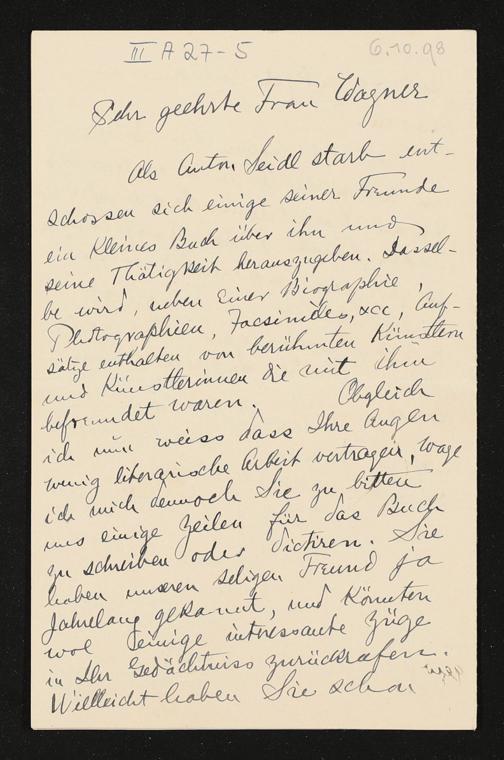 III A 27-5
6.10.98
Sehr geehrte Frau Wagner
Als Anton Seidl starb ent-
schossen sich einige seiner Freunde
ein kleines Buch über ihn und
seine Thätigkeit herauszugeben. Dassel-
be wird, neben einer Biographie,
Photographien, Facsimiles, xcc, Auf-
sätze enthalten von berühmten Künstlern
und Künstlerinnen die mit ihm
befreundet waren. Obgleich
ich nun weiss dass Ihre Augen
wenig literarische Arbeit vertragen, wage
ich mich dennoch Sie zu bitten
uns einige Zeilen für das Buch
zu schreiben oder dictiren. Sie
haben unseren seligen Freund ja
Jahrelang gekannt, und könnten
wol einige interessante Züge
in Ihr Gedächtniss zurückrufen.
Wielleicht haben Sie schon